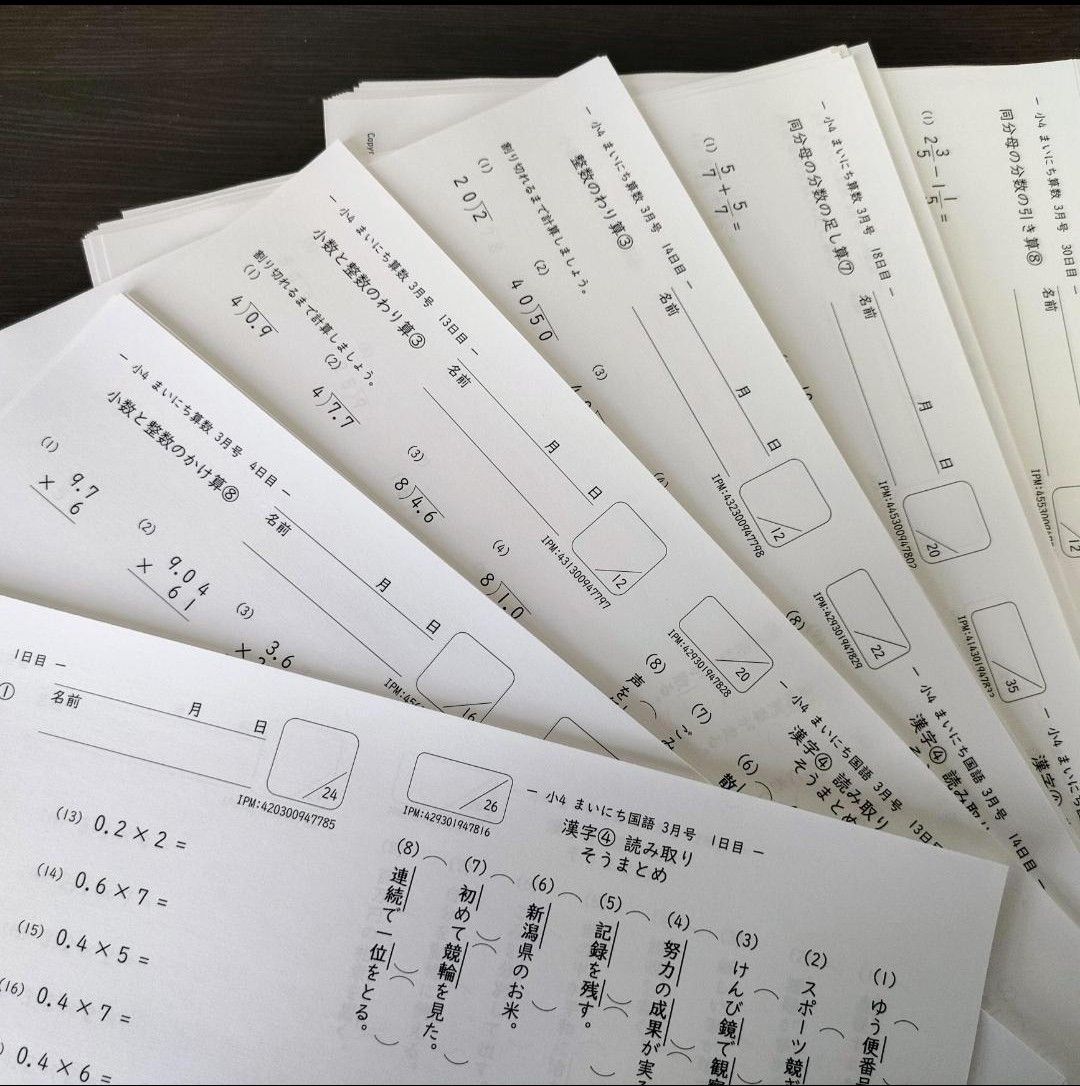 Copyr
(1)
2 3/5 − 1 1/5 =
− 小4 まいにち算数 3月号 30日目 −
同分母の分数の引き算⑧
名前
12
− 小4 まいにち算数 3月号 18日目 −
同分母の分数の足し算⑦
名前
月 日
(1)
5/7 + 5/7 =
20
IPM:414301947833
35
− 小4 まいにち算数 3月号 14日目 −
整数のわり算③
名前
月 日
割り切れるまで計算しましょう。
(1)
20)2
(2)
40)50
(3)
12
IPM:432300947798
IPM:429301947829
22
− 小4 まいにち国語 3月号 14日目 −
漢字④ 読み取り
− 小4 まいにち算数 3月号 13日目 −
小数と整数のわり算③
名前
月 日
割り切れるまで計算しましょう。
(1)
4)0.9
(2)
4)7.7
(3)
8)4.6
(4)
8)1.0
12
IPM:431300947797
IPM:429301947828
20
− 小4 まいにち国語 3月号 13日目
漢字④ 読み取り
そうまとめ
(8)
(7)
(6)
− 小4 まいにち算数 3月号 4日目 −
小数と整数のかけ算⑧
名前
月 日
(1)
9.7
× 6
(2)
9.04
× 61
(3)
3.6
×
16
1日目 −
①
名前
月 日
24
IPM:420300947785
(13) 0.2 × 2 =
(14) 0.6 × 7 =
(15) 0.4 × 5 =
(16) 0.4 × 7 =
0.4 × 6 =
26
IPM:429301947816
− 小4 まいにち国語 3月号 1日目 −
漢字④ 読み取り
そうまとめ
(1) ゆう便番
(2) スポーツ競
(3) けんび鏡で観
(4) 努力の成果が実
(5) 記録を残す。
(6) 新潟県のお米。
(7) 初めて競輪を見た。
(8) 連続で一位をとる。